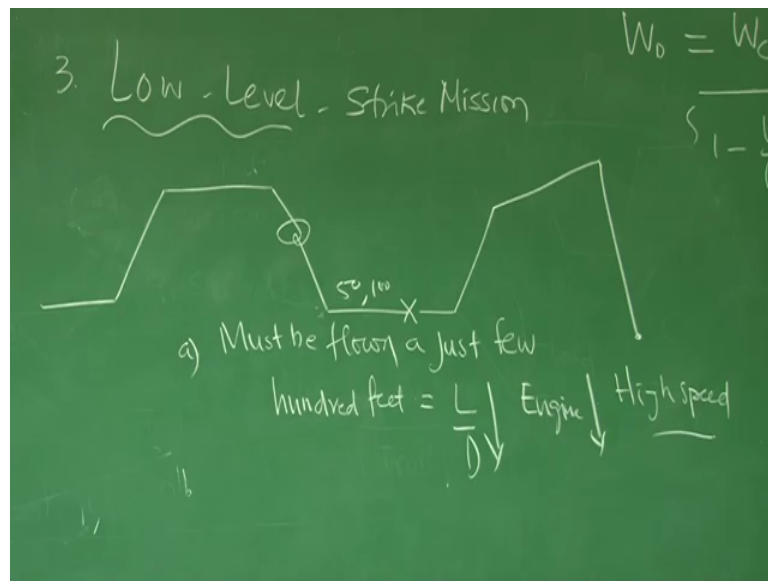 3. Low-Level-Strike Mission
W₀ = W
1 -
50, 100
a) Must be flown a just few
hundred feet = L/D ↓ Engine ↓ High speed
lb